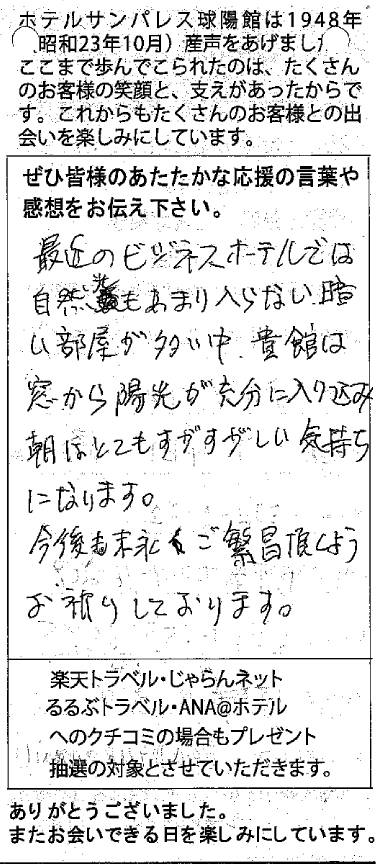 ホテルサンパレス球陽館は1948年
(昭和23年10月）産声をあげまし
ここまで歩んでこられたのは、たくさん
のお客様の笑顔と、支えがあったからで
す。これからもたくさんのお客様との出
会いを楽しみにしています。
ぜひ皆様のあたたかな応援の言葉や
感想をお伝え下さい。
最近のビジネスホテルでは
自然光もあまり入らない暗
い部屋が多い中、貴館は
窓から陽光が充分に入り込み
朝はとてもすがすがしい気持ち
になります。
今後も末永くご繁昌頂くよう
お祈りしております。
楽天トラベル・じゃらんネット
るるぶトラベル・ANA@ホテル
へのクチコミの場合もプレゼント
抽選の対象とさせていただきます。
ありがとうございました。
またお会いできる日を楽しみにしています。